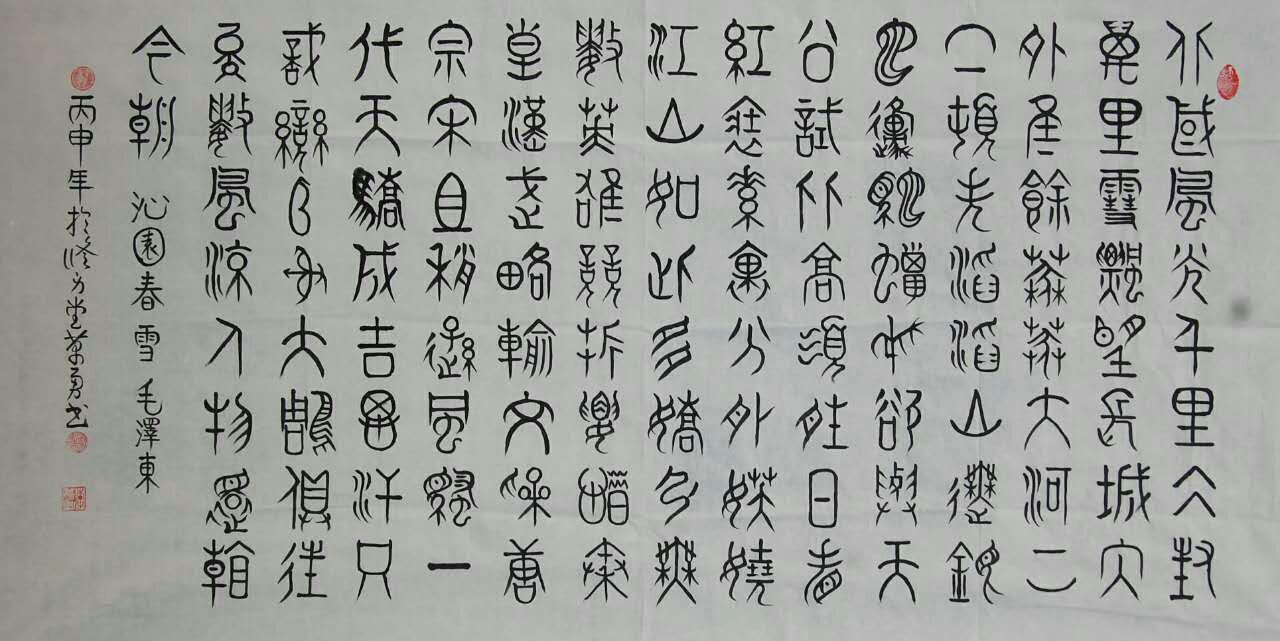 北國風光千里冰封
萬里雪飄望長城內
外惟餘莽莽大河上
下頓失滔滔山舞銀
蛇原馳蠟象欲與天
公試比高須晴日看
紅裝素裹分外妖嬈
江山如此多嬌引無
數英雄競折腰惜秦
皇漢武略輸文采唐
宗宋祖稍遜風騷一
代天驕成吉思汗只
識彎弓射大鵰俱往
矣數風流人物還看
今朝 沁園春 雪 毛澤東
丙申年於堂書